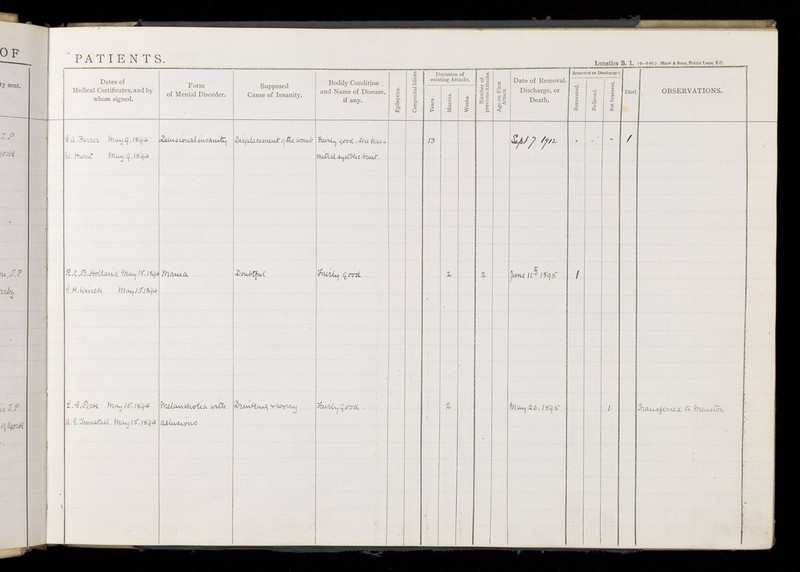 OF
PATIENTS.
Lunatics B. 1.
Shaw & Sons, Fetter Lane, E.C.
Dates of
Medical Certificates, and by
whom signed.
Form
of Mental Disorder.
Supposed
Cause of Insanity.
Bodily Condition
and Name of Disease,
if any.
Epileptics.
Congenital Idiots
Duration of
existing Attacks.
Years
Months.
Weeks.
Number of
previous Attacks.
Age on First
Attack.
Date of Removal,
Discharge, or
Death.
Removed or Discharged.
Recovered.
Relieved.
Not Improved.
Died.
OBSERVATIONS.
May 9. 1894 Delusional insanity Displacement of the womb Fairly good. She has a 13 Sept 7 1912 - - - 1
May 9. 1894 mitral systolic bruit
R.C.B. Holland May 15. 1894 Mania Doubtful Fairly good 2 2 June 11th 1895 1
May 15. 1894
May 15. 1894 Melancholia with Drinking & worry Fairly good 2 May 20. 1895 1 Transferred to
May 15. 1894 delusions